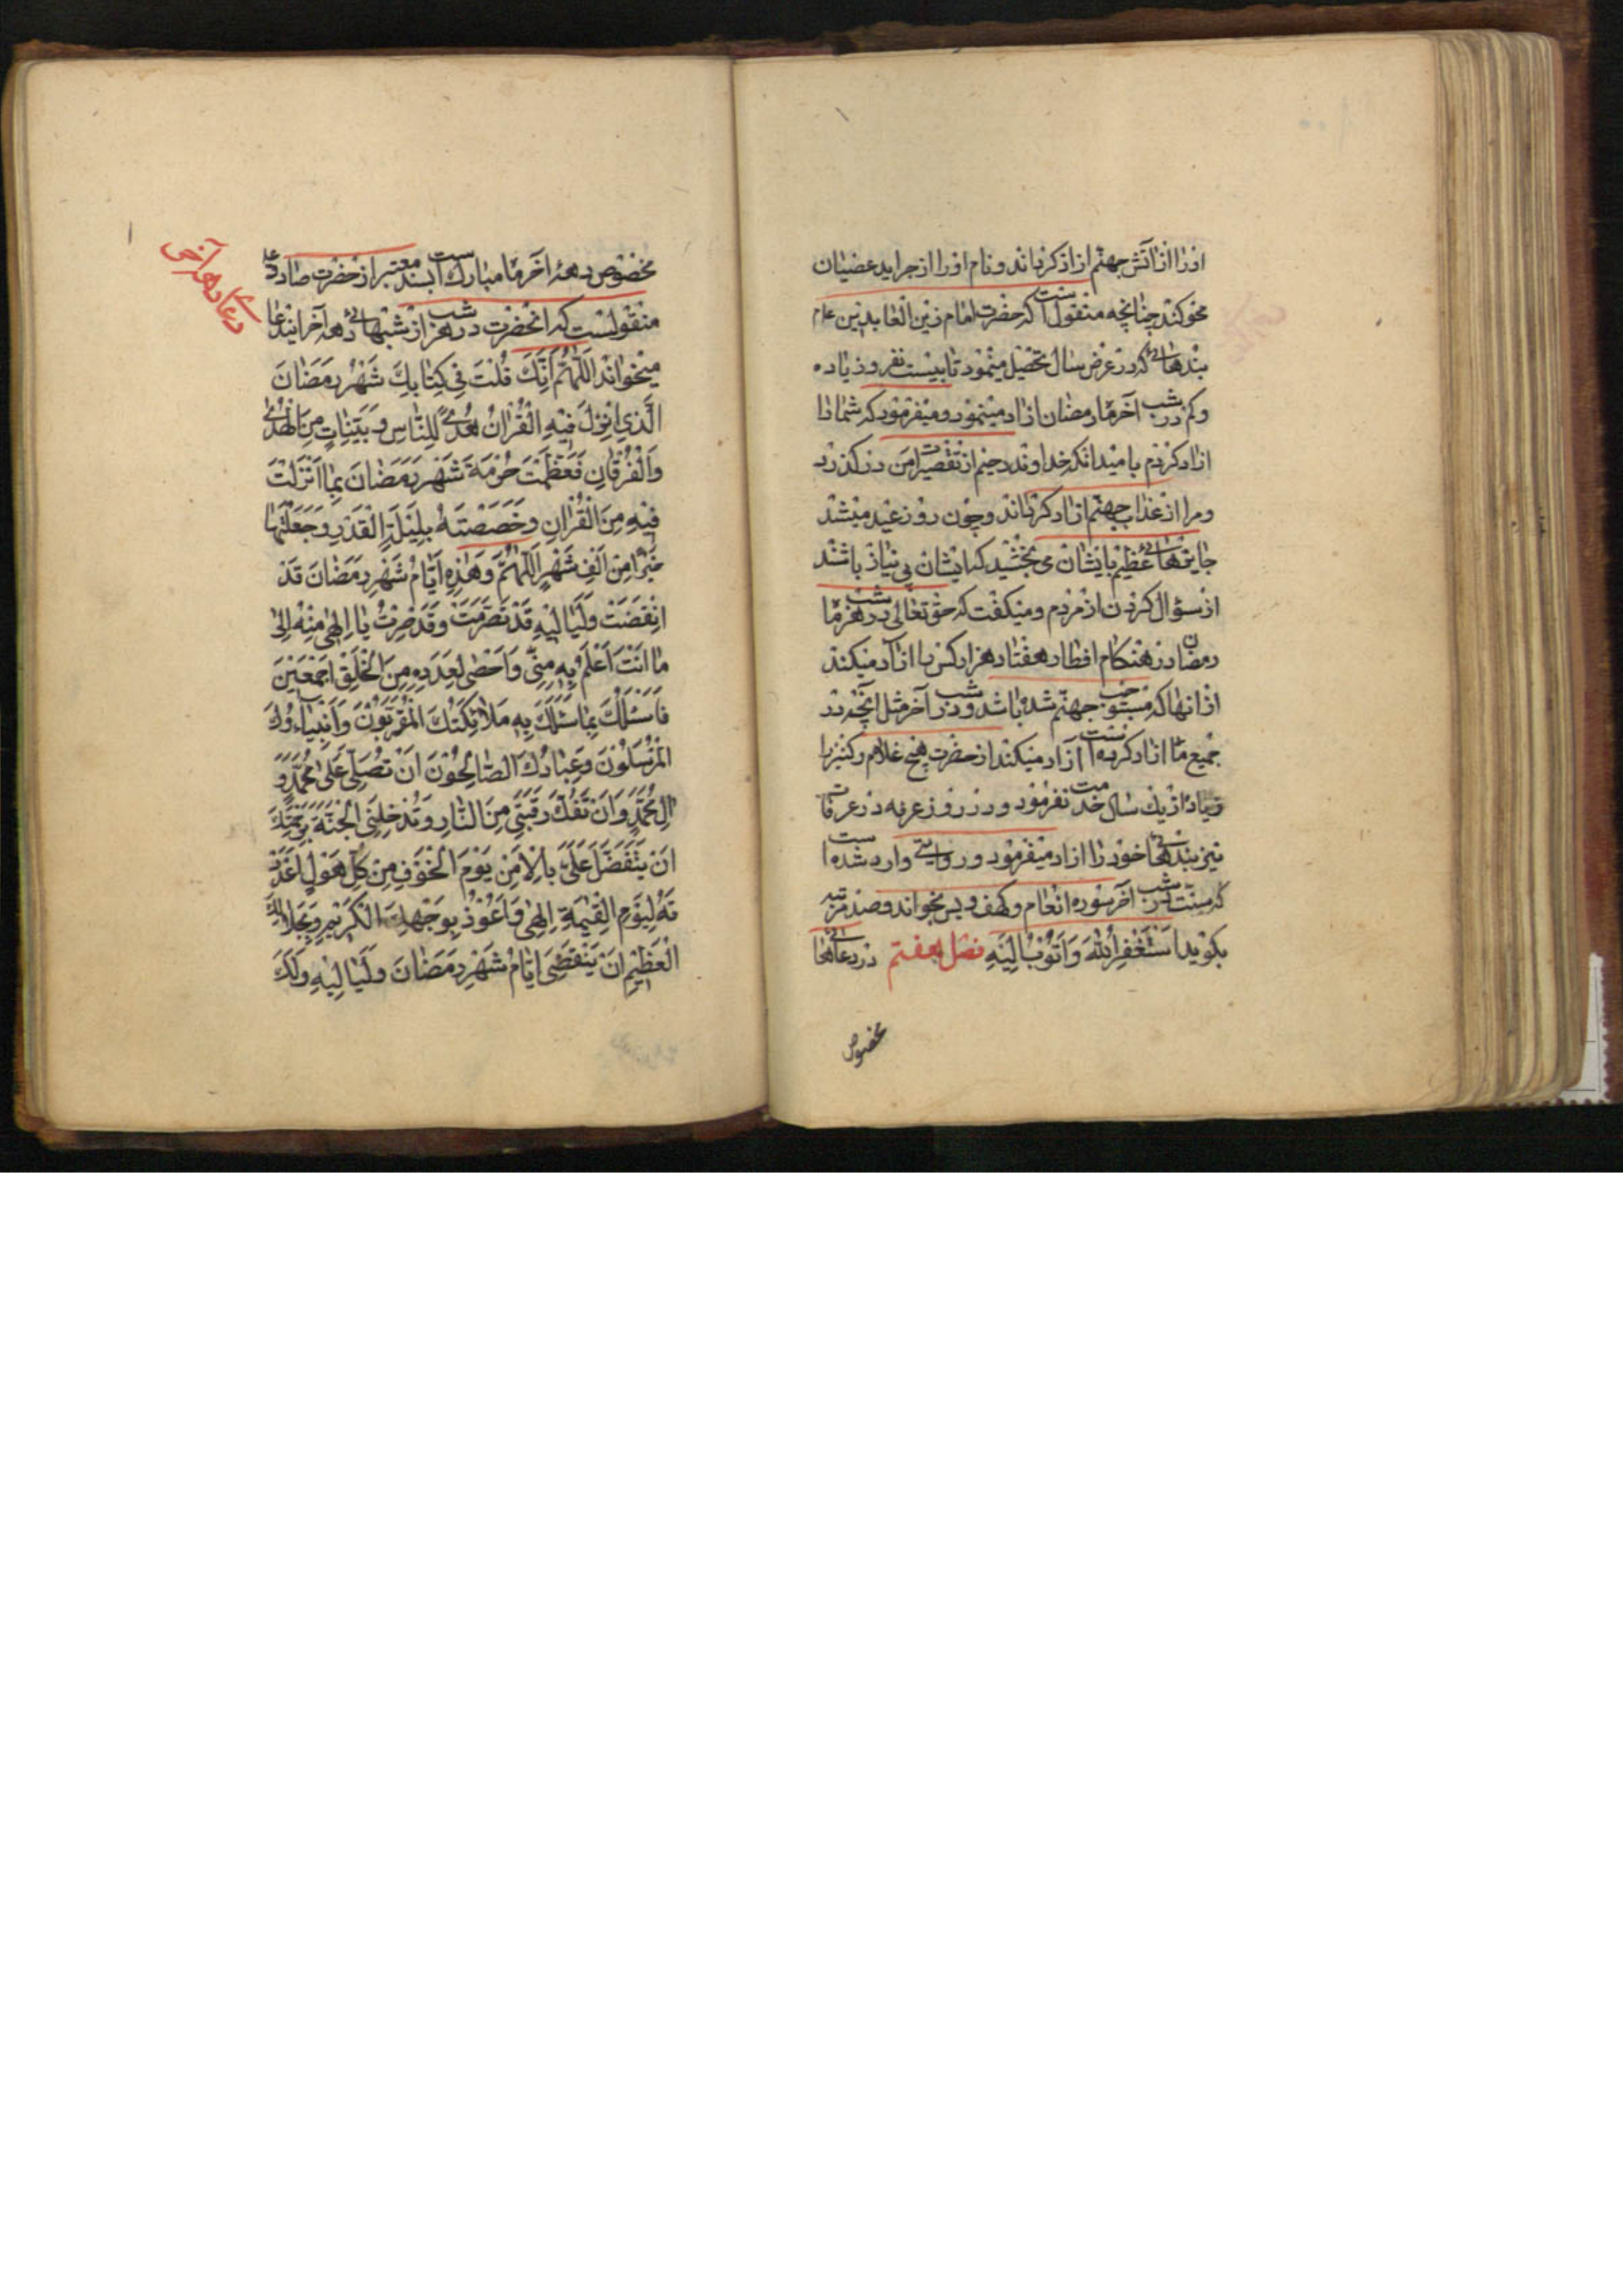 اورا از آتش جهنم ازاد کرداند و نام اورا از جراید عصیان
محو کند چنانچه منقول است که حضرت امام زین العابدین ع‍ام
بندهائی که در عرض سال تحصیل مینمود تا بیست نفر و زیاده
و کم در شب آخر ماه رمضان ازاد مینمود و میفرمود که شما را
ازاد کردم بامید انکه خداوند رحیم از تقصیرات من درکذرد
و مرا از عذاب جهنم ازاد کرداند و چون روز عید میشد
جایزهائی عظیم بایشان می بخشید که ایشان بی نیاز باشند
از سؤال کردن از مردم و میکفت که حق تعالی در هر شب ماه
رمضان در هنکام افطار هفتاد هزار کس را ازاد میکند
از انها که مستوجب جهنم شده باشد و در شب آخر مثل آنچه در
جمیع ماه ازاد کرده است آزاد میکند از حضرت هیچ غلام و کنیز را
زیاده از یک سال خدمت نفرمود و در روز عرفه در عرفات
نیز بندهائی خود را ازاد میفرمود و روایتی وارد شده است
که سنت است شب آخر سوره انعام و کهف و یس بخواند و صد مرتبه
بکوید اَسْتَغْفِرُ اللّٰهَ وَاَتُوْبُ اِلَیْهِ فصل هفتم در دعاهائی
مخصوص
مخصوص دههٔ اخر ماه مبارک است بسند معتبر از حضرت صادق ع
منقولست که انحضرت در هر شب از شبهائی دهه آخر ایندعا
میخواند اَللّٰهُمَّ اِنَّكَ قُلْتَ فِی كِتٰابِكَ شَهْرُ رَمَضٰانَ
الَّذِی اُنْزِلَ فِیْهِ الْقُرْاٰنُ هُدًی لِلنّٰاسِ وَ بَیِّنٰاتٍ مِنَ الْهُدٰی
وَالْفُرْقٰانِ فَعَظَّمْتَ حُرْمَةَ شَهْرِ رَمَضٰانَ بِمٰا اَنْزَلْتَ
فِیْهِ مِنَ الْقُرْاٰنِ وَ خَصَصْتَهُ بِلَیْلَةِ الْقَدْرِ وَجَعَلْتَهٰا
خَیْرًا مِنْ اَلْفِ شَهْرٍ اَللّٰهُمَّ وَ هٰذِهِ اَیّٰامُ شَهْرِ رَمَضٰانَ قَدْ
انْقَضَتْ وَلَیٰالِیْهِ قَدْ تَصَرَّمَتْ وَ قَدْ صِرْتُ یٰا اِلٰهِی مِنْهُ اِلٰی
مٰا اَنْتَ اَعْلَمُ بِهِ مِنِّی وَ اَحْصٰی لِعَدَدِهِ مِنَ الْخَلْقِ اَجْمَعِیْنَ
فَاَسْئَلُكَ بِمٰا سَئَلَكَ بِهِ مَلاٰئِكَتُكَ الْمُقَرَّبُوْنَ وَ اَنْبِیٰاءُكَ
الْمُرْسَلُوْنَ وَ عِبٰادُكَ الصّٰالِحُوْنَ اَنْ تُصَلِّی عَلٰی مُحَمَّدٍ وَ
اٰلِ مُحَمَّدٍ وَ اَنْ تَفُكَّ رَقَبَتِی مِنَ النّٰارِ وَ تُدْخِلَنِی الْجَنَّةَ بِرَحْمَتِكَ
اَنْ یَتَفَضَّلَ عَلَیَّ بِالْاَمْنِ یَوْمَ الْخَوْفِ مِنْ كُلِّ هَوْلٍ اَعْدَدْ
تَهُ لِیَوْمِ الْقِیٰمَةِ اِلٰهِی وَ اَعُوْذُ بِوَجْهِكَ الْكَرِیْمِ وَ بِجَلاٰلِكَ
الْعَظِیْمِ اَنْ یَنْقَضِیَ اَیّٰامُ شَهْرِ رَمَضٰانَ وَ لَیٰالِیْهِ وَ لَكَ